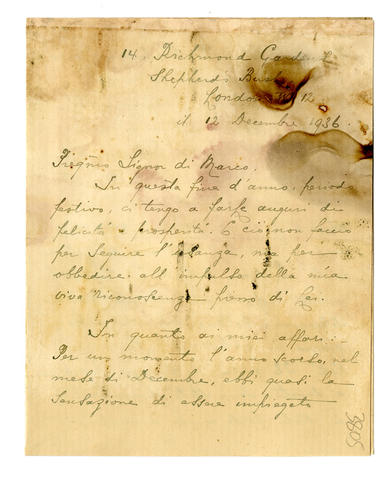 14, Richmond Gardens
Shepherds Bush
London W. 12
il 12 Decembre 1936.
Preg.mo Signor di Marco,
In questa fine d'anno, periodo
festivo, ci tengo a farle auguri di
felicità e prosperità. E ciò non faccio
per seguire l'usanza, ma per
obbedire all'impulso della mia
viva riconoscenza verso di Lei.
In quanto ai miei affari:-
Per un momento l'anno scorso, nel
mese di Decembre, ebbi quasi la
sensazione di essere impiegato
3805